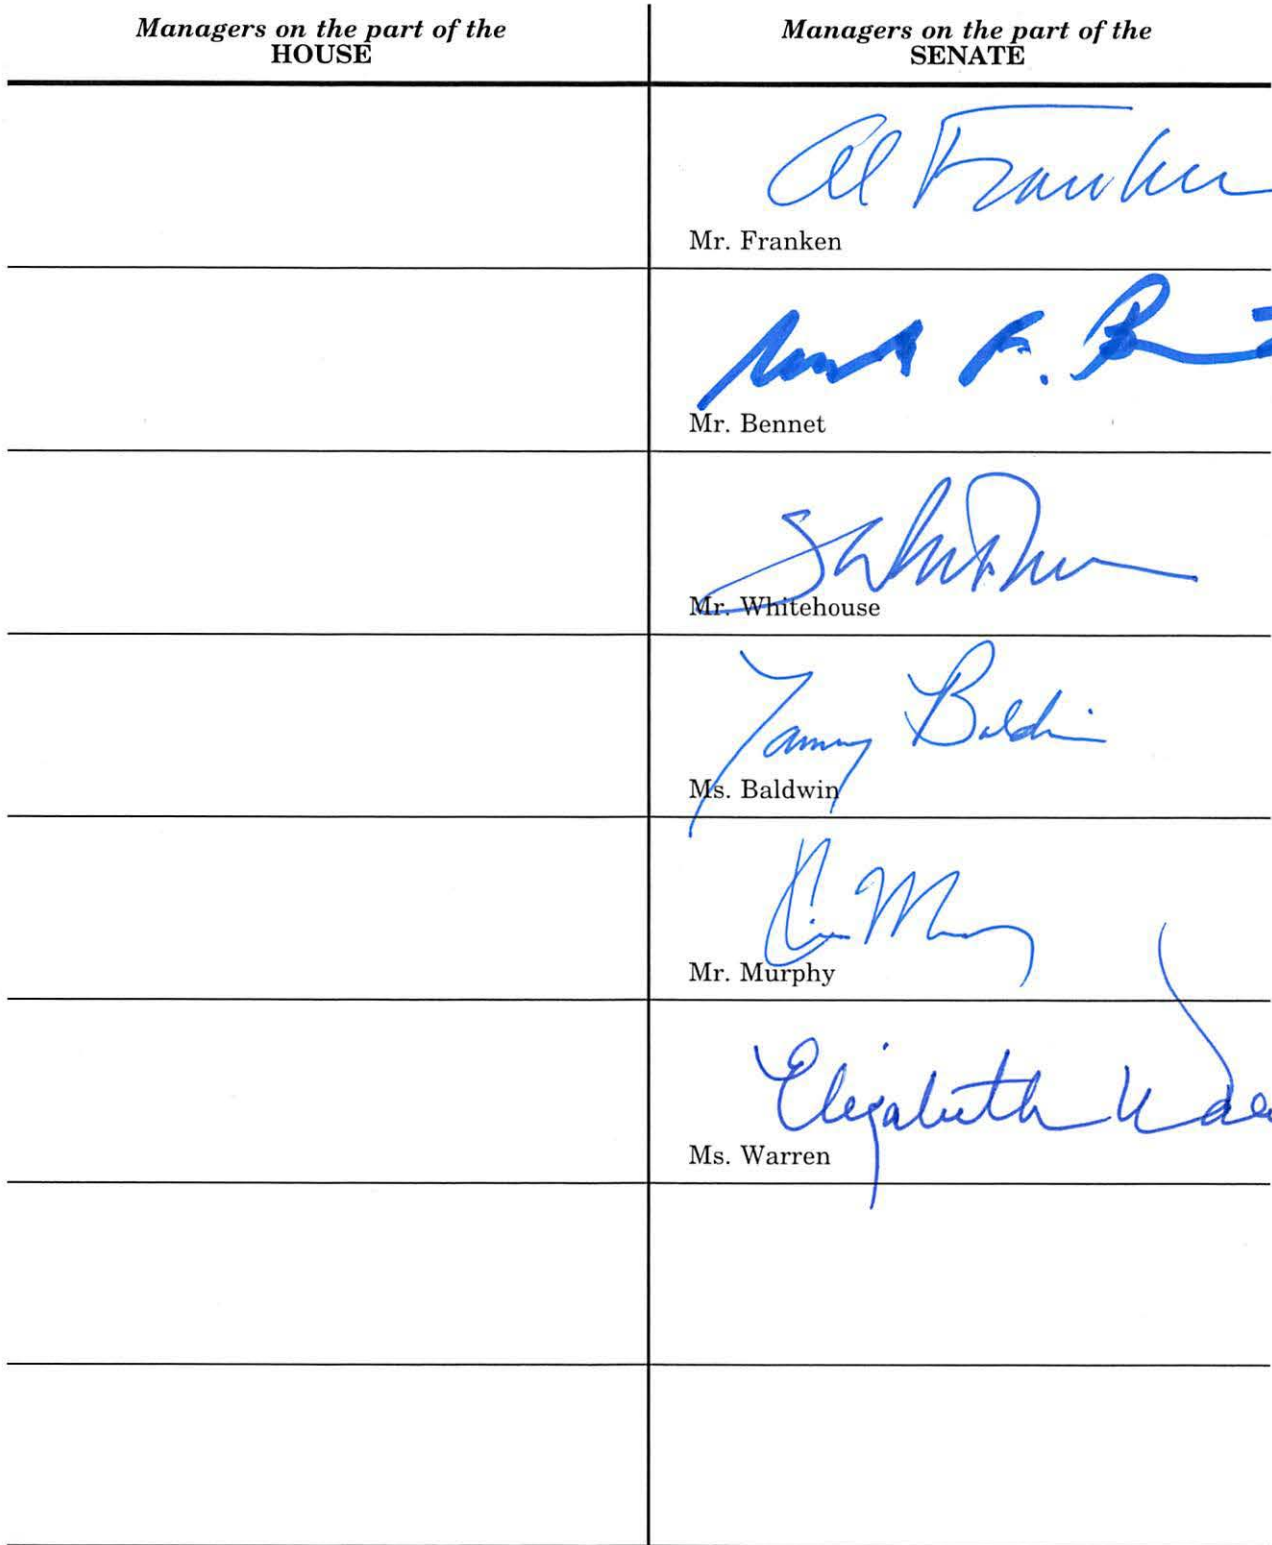 Managers on the part of the
HOUSE
Managers on the part of the
SENATE
Al Franken
Mr. Franken
Mr. Bennet
Mr. Whitehouse
Tammy Baldwin
Ms. Baldwin
Mr. Murphy
Elizabeth Wa
Ms. Warren